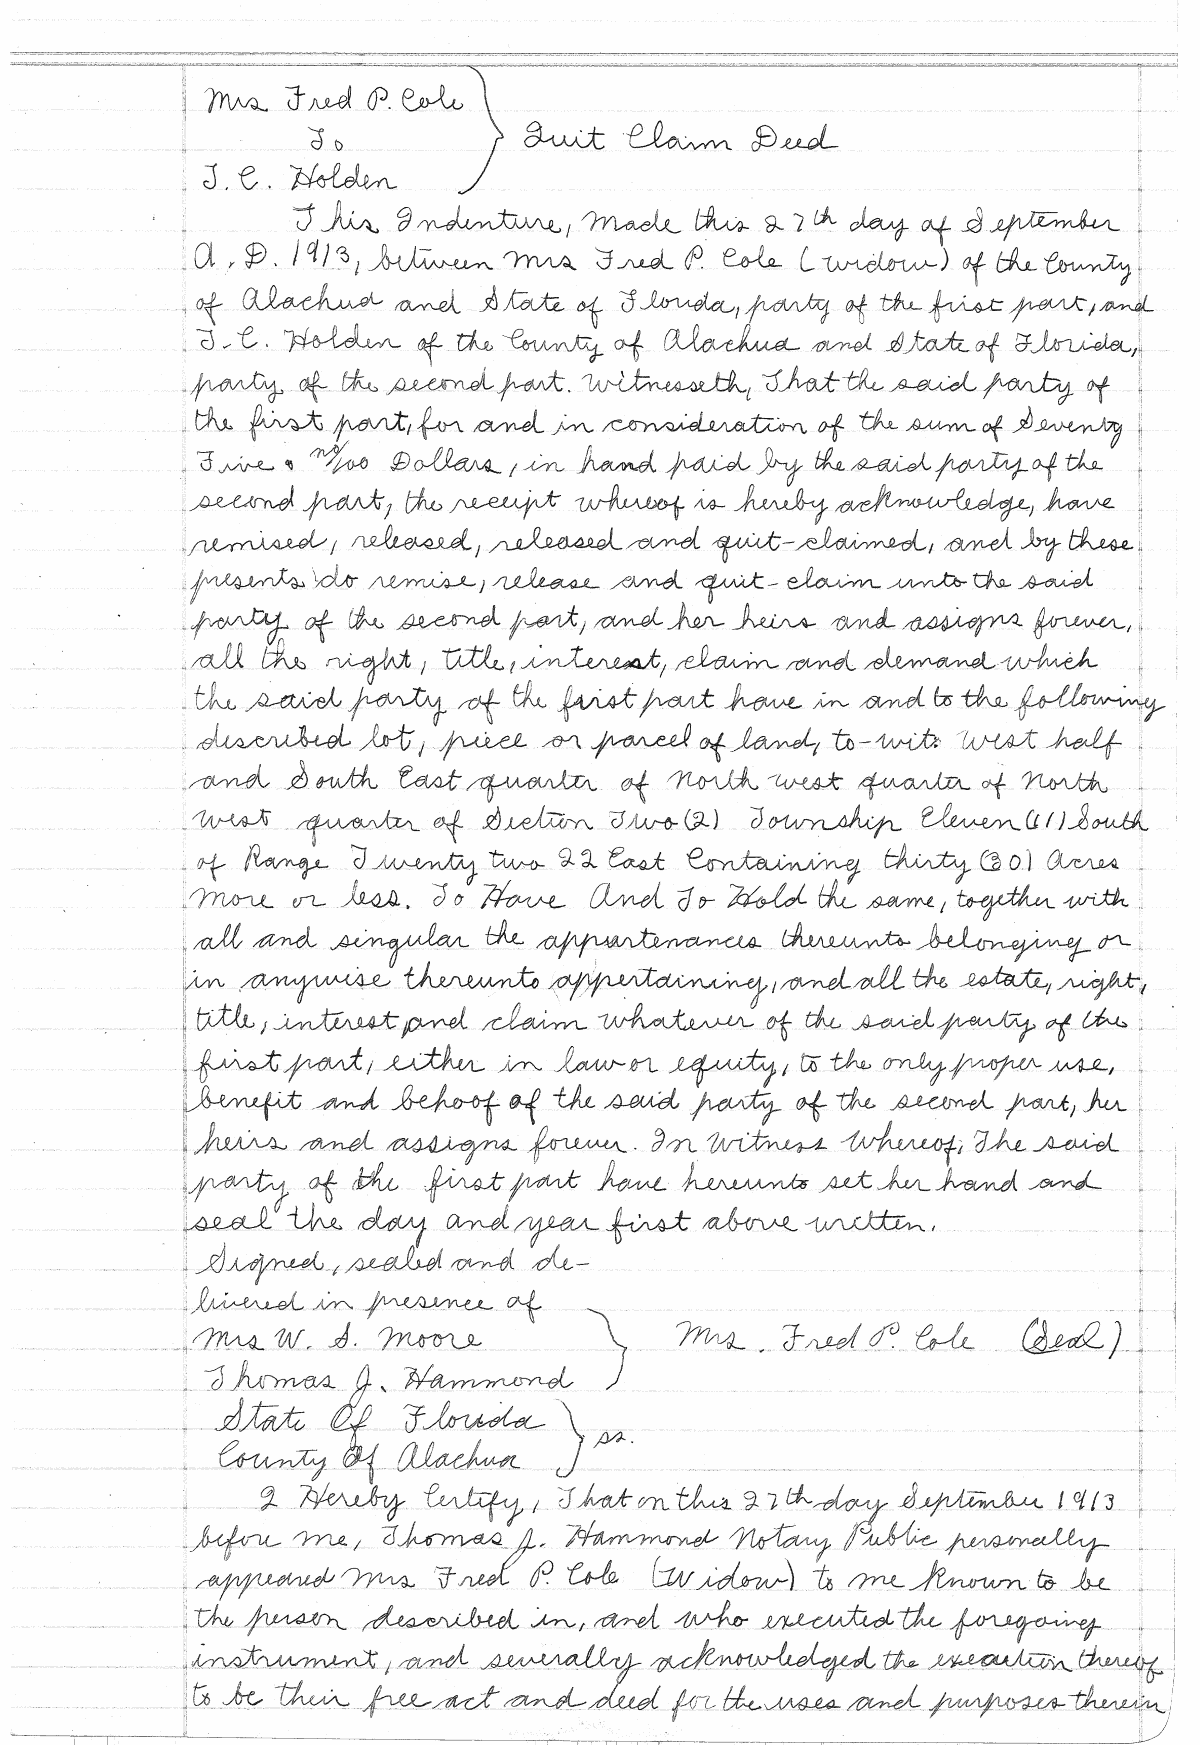 Mrs Fred P. Cole
To
Quit Claim Deed
J. C. Holden
This Indenture, Made this 27th day of September
A. D. 1913, between Mrs Fred P. Cole (widow) of the County
of Alachua and State of Florida, party of the first part, and
J. C. Holden of the County of Alachua and State of Florida,
party of the second part. Witnesseth, That the said party of
the first part, for and in consideration of the sum of Seventy
Five & no/00 Dollars, in hand paid by the said party of the
second part, the receipt whereof is hereby acknowledge, have
remised, released, released and quit-claimed, and by these
presents do remise, release and quit-claim unto the said
party of the second part, and her heirs and assigns forever,
all the right, title, interest, claim and demand which
the said party of the first part have in and to the following
described lot, piece or parcel of land, to-wit: West half
and South East quarter of North west quarter of North
West quarter of Section Two (2) Township Eleven (11) South
of Range Twenty two 22 East Containing thirty (30) Acres
more or less. To Have And To Hold the same, together with
all and singular the appurtenances thereunto belonging or
in anywise thereunto appertaining, and all the estate, right,
title, interest, and claim whatever of the said party of the
first part, either in law or equity, to the only proper use,
benefit and behoof of the said party of the second part, her
heirs and assigns forever. In Witness Whereof, The said
party of the first part have hereunto set her hand and
seal the day and year first above written.
Signed, sealed and de-
livered in presence of
Mrs W. S. Moore
Mrs. Fred P. Cole (Seal)
Thomas J. Hammond
State Of Florida
ss.
County Of Alachua
I Hereby Certify, That on this 27th day September 1913
before me, Thomas J. Hammond Notary Public personally
appeared Mrs Fred P. Cole (Widow) to me known to be
the person described in, and who executed the foregoing
instrument, and severally acknowledged the execution thereof
to be their free act and deed for the uses and purposes therein